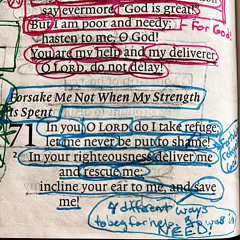 say evermore, "God is great!"
But I am poor and needy;
hasten to me, O God!
For God!
You are my help and my deliverer;
O LORD, do not delay!
Forsake Me Not When My Strength
Is Spent
71 In you, O LORD, do I take refuge;
let me never be put to shame!
In your righteousness deliver me
and rescue me;
incline your ear to me, and save
me!
4 different ways
to beg for help
NEED!